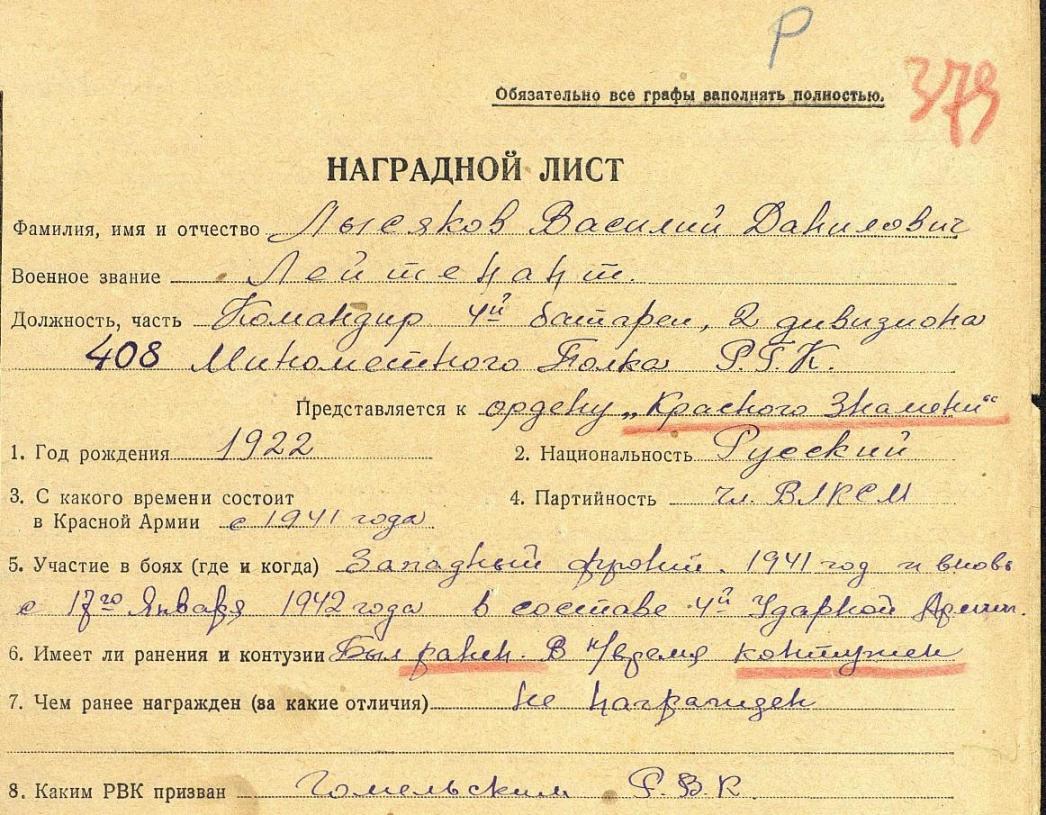 Р
379
Обязательно все графы заполнять полностью.
НАГРАДНОЙ ЛИСТ
Фамилия, имя и отчество Лысяков Василий Данилович
Военное звание Лейтенант.
Должность, часть Командир 4й батареи, 2 дивизиона
408 Минометного Полка Р.Г.К.
Представляется к ордену „Красного Знамени“
1. Год рождения 1922
2. Национальность Русский
3. С какого времени состоит
в Красной Армии с 1941 года
4. Партийность чл. ВЛКСМ
5. Участие в боях (где и когда) Западный фронт. 1941 год и вновь
с 17го Января 1942 года в составе 4й Ударной Армии.
6. Имеет ли ранения и контузии Был ранен. В н/время контужен
7. Чем ранее награжден (за какие отличия) не награжден
8. Каким РВК призван Гомельским Р.В.К.